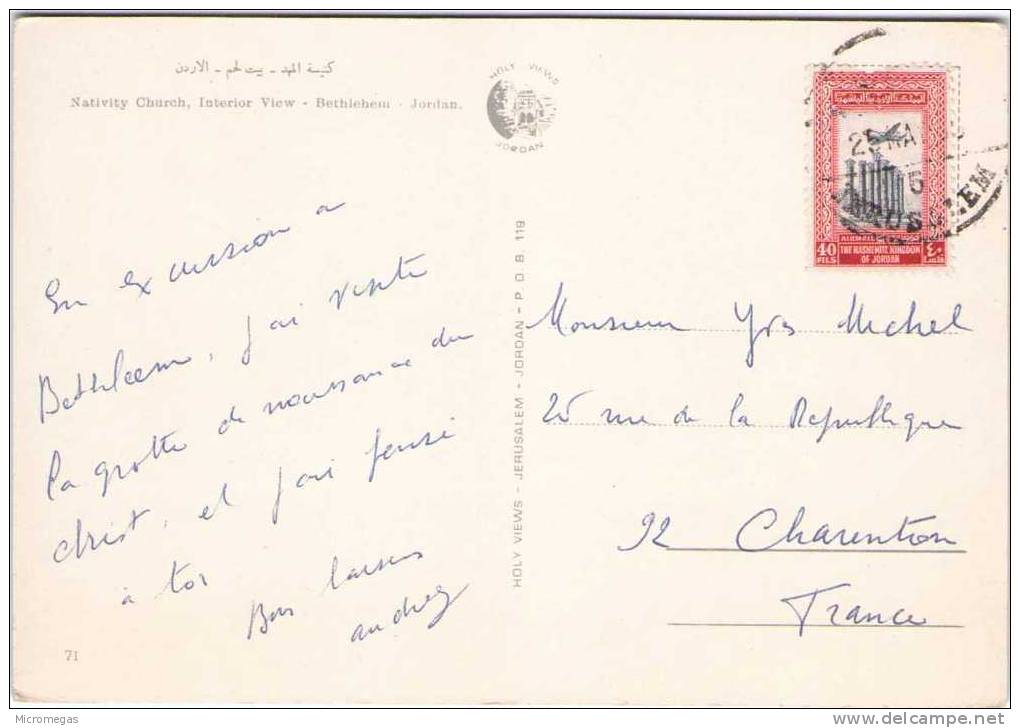 كنيسة المهد - بيت لحم - الاردن
Nativity Church, Interior View - Bethlehem - Jordan.
HOLY VIEWS
JORDAN
25 MA
JERUSALEM
40
FILS
THE HASHEMITE KINGDOM
OF JORDAN
٤٠
En excursion a
Bethleem, j'ai visité
la grotte de naissance du
christ, et j'ai pensé
à toi
Bons baisers
HOLY VIEWS - JERUSALEM - JORDAN - P.O.B. 119
Monsieur Yves Michel
25 rue de la Republique
92 Charenton
France
71
Micromegas
www.delcampe.net